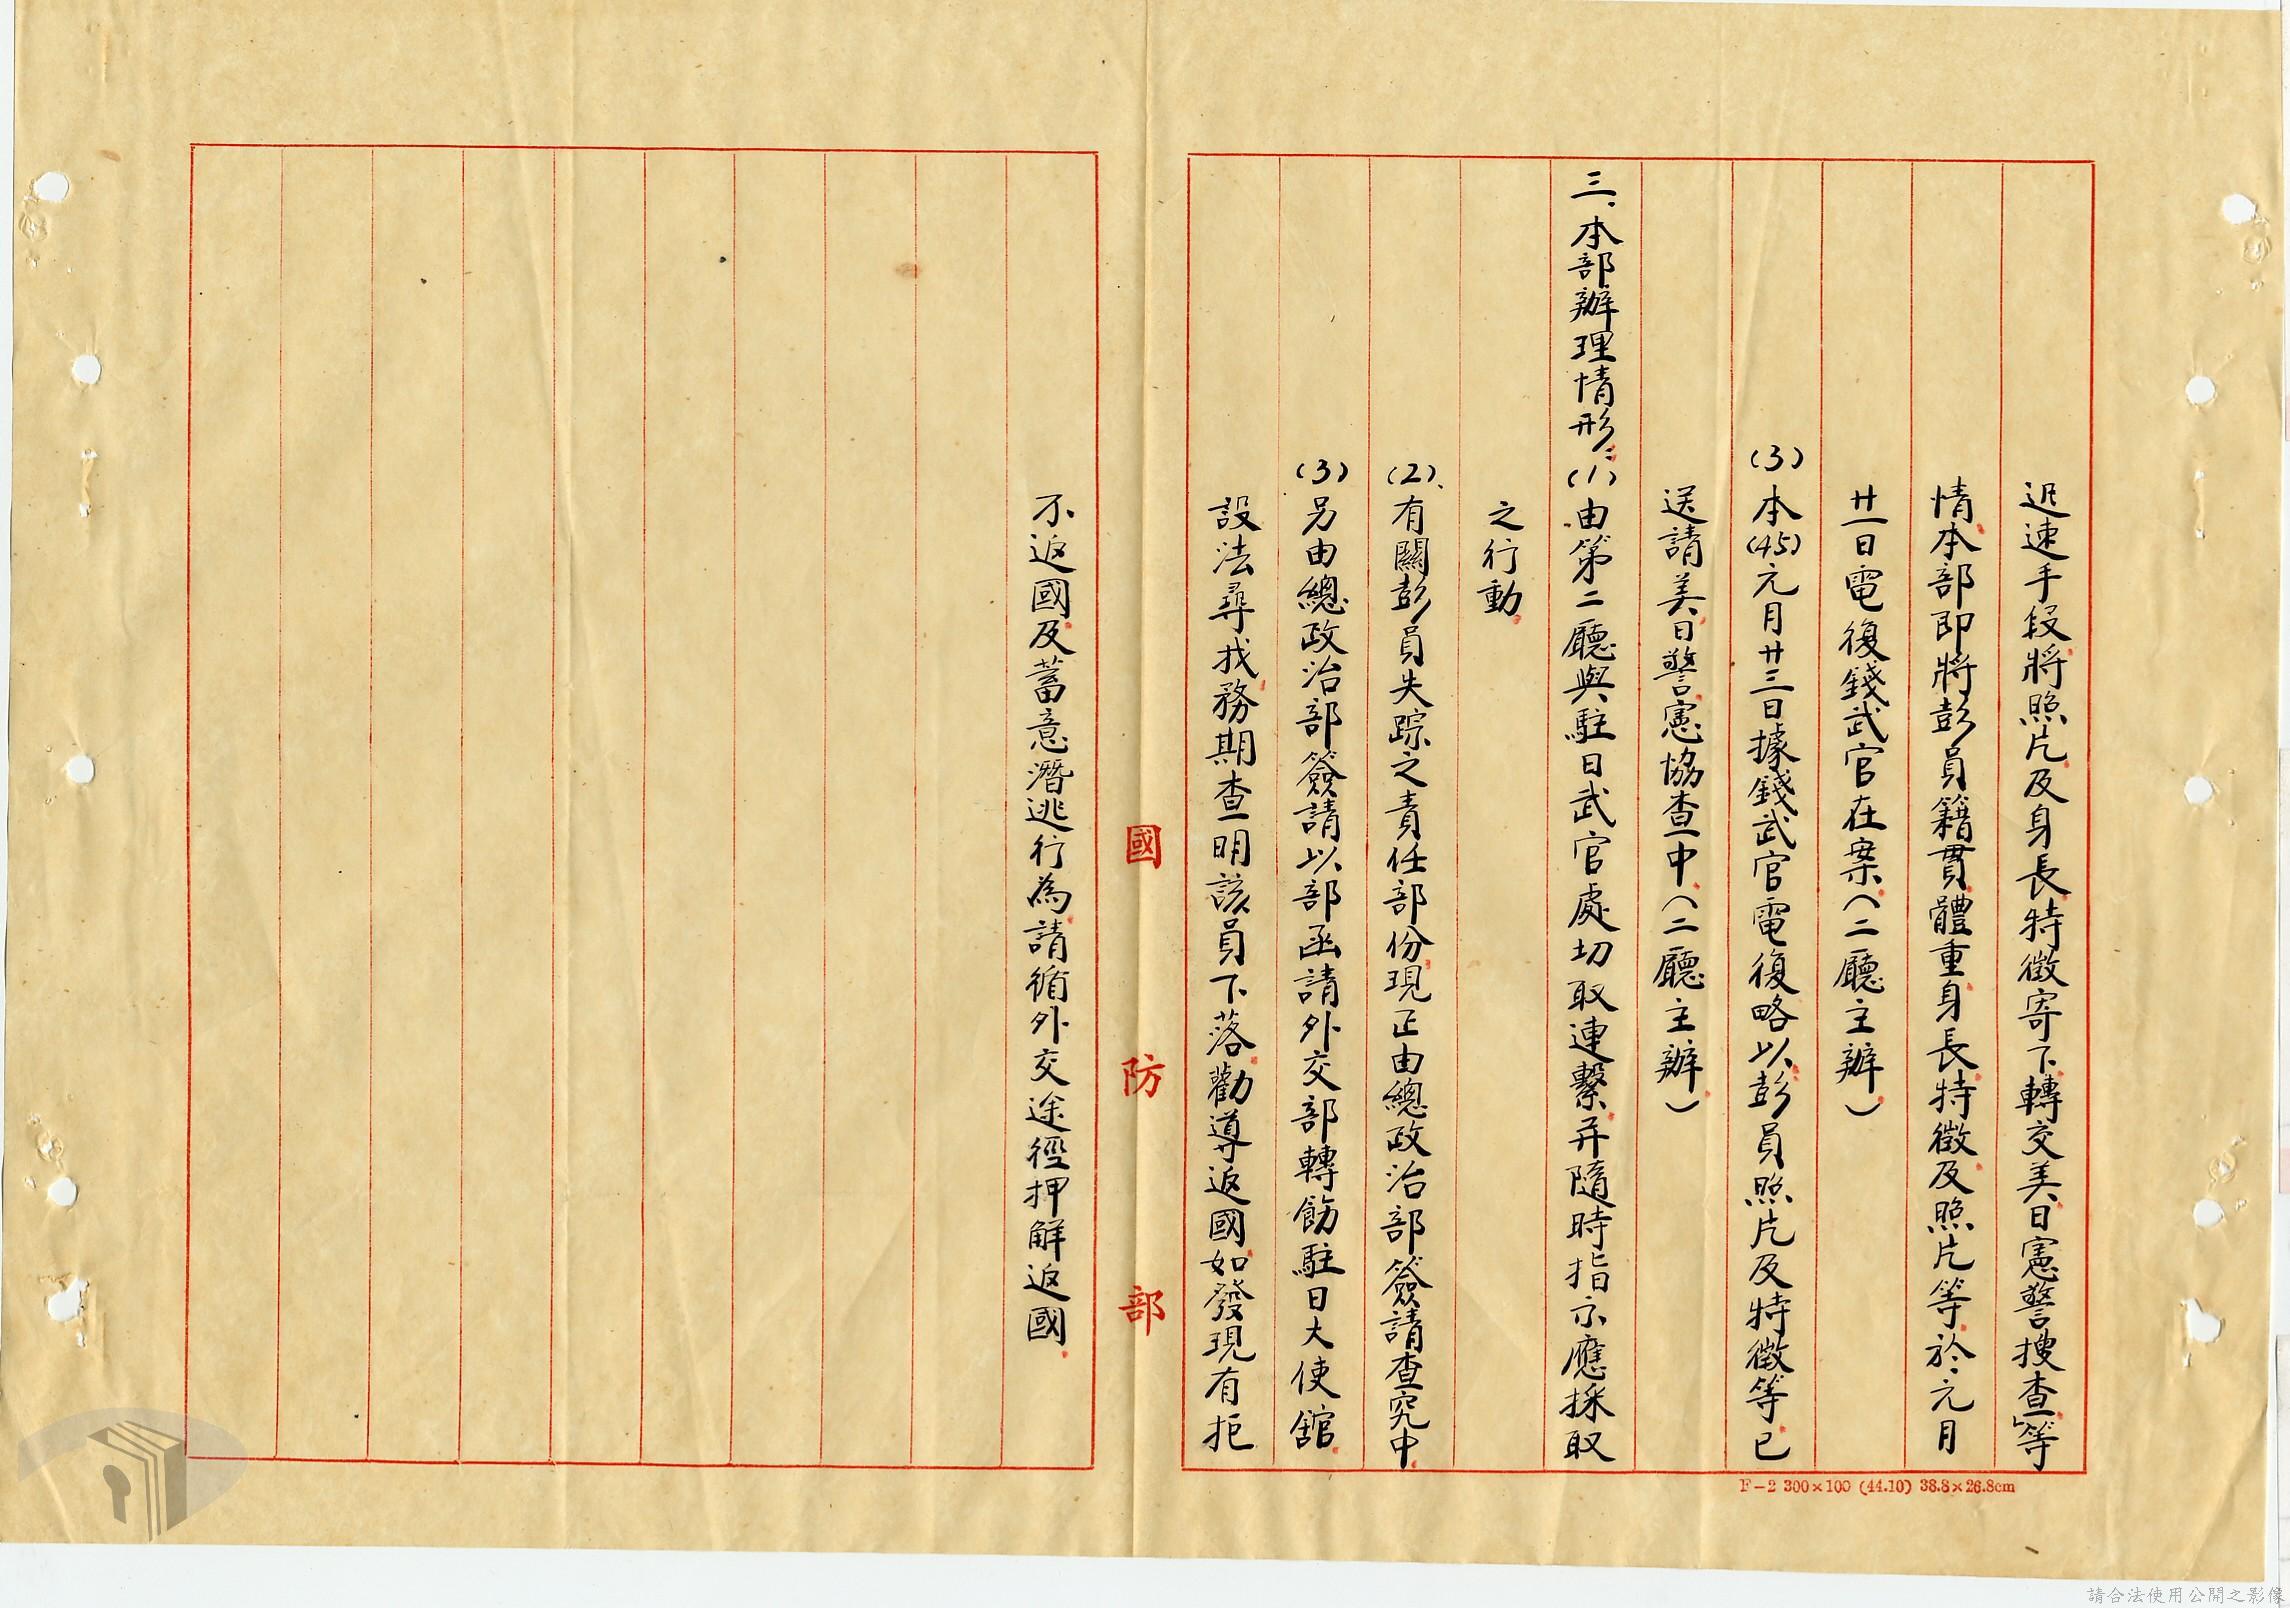 迅速手段將照片及身長特徵寄下轉交美日憲警搜查」等
情本部即將彭員籍貫體重身長特徵及照片等於元月
廿一日電復錢武官在案（二廳主辦）
(3)本(45)元月廿三日據錢武官電復略以彭員照片及特徵等已
送請美日警憲協查中（二廳主辦）
三、本部辦理情形：(1)由第二廳與駐日武官處切取連繫并隨時指示應採取
之行動
(2)、有關彭員失踪之責任部份現正由總政治部簽請查究中
(3)另由總政治部簽請以部函請外交部轉飭駐日大使舘
設法尋找務期查明該員下落勸導返國如發現有拒
國防部
不返國及蓄意潛逃行為請循外交途徑押解返國
F-2 300×100 (44.10) 38.8×26.8cm
請合法使用公開之影像